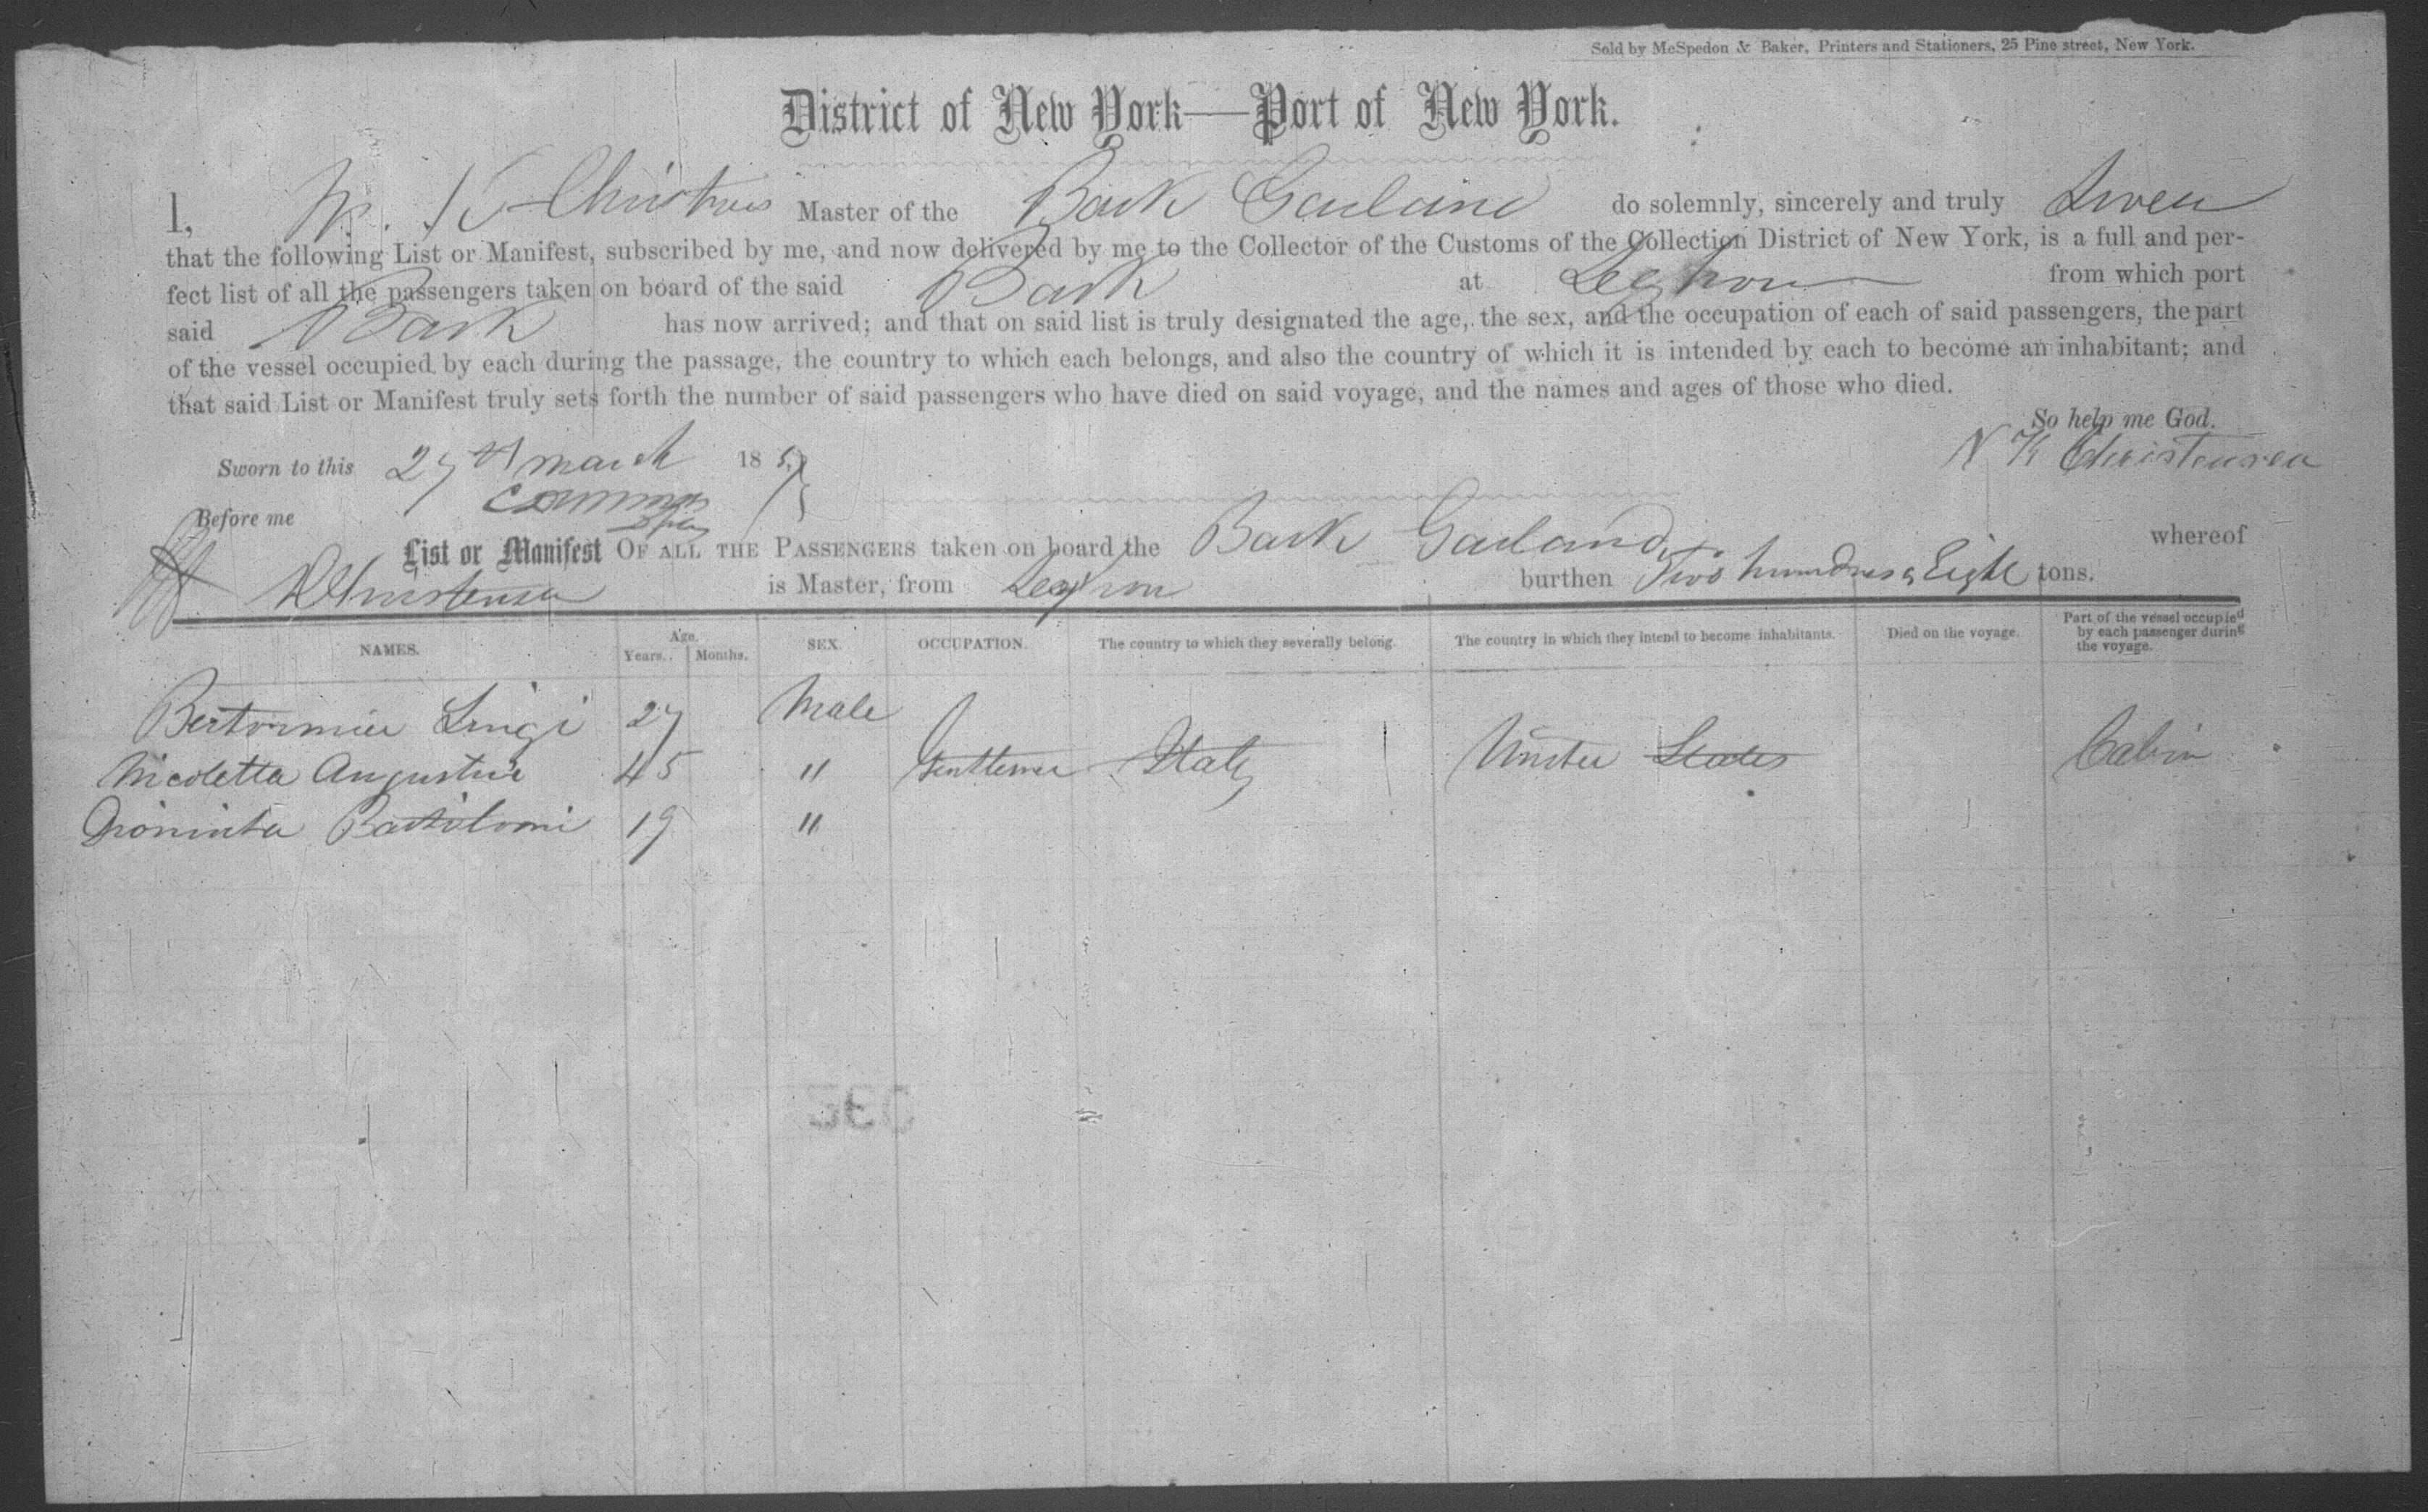 Sold by McSpedon & Baker, Printers and Stationers, 25 Pine street, New York.
District of New York—Port of New York.
I, Master of the Bark Garland do solemnly, sincerely and truly Swear
that the following List or Manifest, subscribed by me, and now delivered by me to the Collector of the Customs of the Collection District of New York, is a full and per-
fect list of all the passengers taken on board of the said Bark at Leghorn from which port
said Bark has now arrived; and that on said list is truly designated the age, the sex, and the occupation of each of said passengers, the part
of the vessel occupied by each during the passage, the country to which each belongs, and also the country of which it is intended by each to become an inhabitant; and
that said List or Manifest truly sets forth the number of said passengers who have died on said voyage, and the names and ages of those who died.
So help me God.
N K Christensen
Sworn to this 27th march 185
Before me
List or Manifest OF ALL THE PASSENGERS taken on board the Bark Garland whereof
Christensen is Master, from Leghorn burthen Two hundred & Eight tons.
NAMES. Age. Years. Months. SEX. OCCUPATION. The country to which they severally belong. The country in which they intend to become inhabitants. Died on the voyage. Part of the vessel occupied by each passenger during the voyage.
Luigi 27 Male
Nicoletta Augustine 45 " Gentlemen Italy United States Cabin
19 "